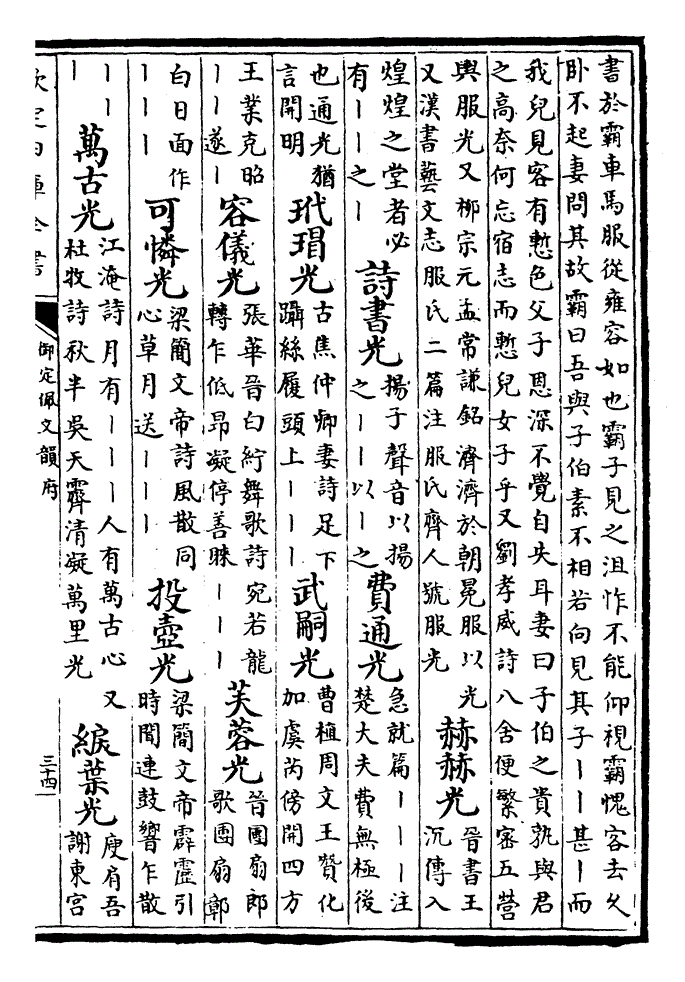 書於霸車馬服從雍容如也霸子見之沮怍不能仰視霸愧客去久
卧不起妻問其故霸曰吾與子伯素不相若向見其子丨丨甚丨而
我兒見客有慙色父子恩深不覺自失耳妻曰子伯之貴孰與君
之高奈何忘宿志而慙兒女子乎又劉孝威詩八舍便繁密五營
輿服光又柳宗元孟常謙銘濟濟於朝冕服以光
又漢書藝文志服氏二篇注服氏齊人號服光
赫赫光
晉書王
沉傳入
煌煌之堂者必
有丨丨之丨
詩書光
揚子聲音以揚
之丨丨以丨之
費通光
急就篇丨丨丨注
楚大夫費無極後
也通光猶
言開明
玳瑁光
古焦仲卿妻詩足下
躡絲履頭上丨丨丨
武嗣光
曹植周文王贊化
加虞芮傍開四方
王業克昭
丨丨遂丨
容儀光
張華晉白紵舞歌詩宛若龍
轉乍低昂凝停善睞丨丨丨
芙蓉光
晉團扇郎
歌團扇鄣
白日面作
丨丨丨
可憐光
梁簡文帝詩風散同
心草月送丨丨丨
投壺光
梁簡文帝霹靂引
時聞連鼓響乍散
丨丨
丨
萬古光
江淹詩月有丨丨丨人有萬古心又
杜牧詩秋半吳天霽清凝萬里光
綟葉光
庾肩吾
謝東宮
欽定四庫全書
御定佩文韻府
三十四